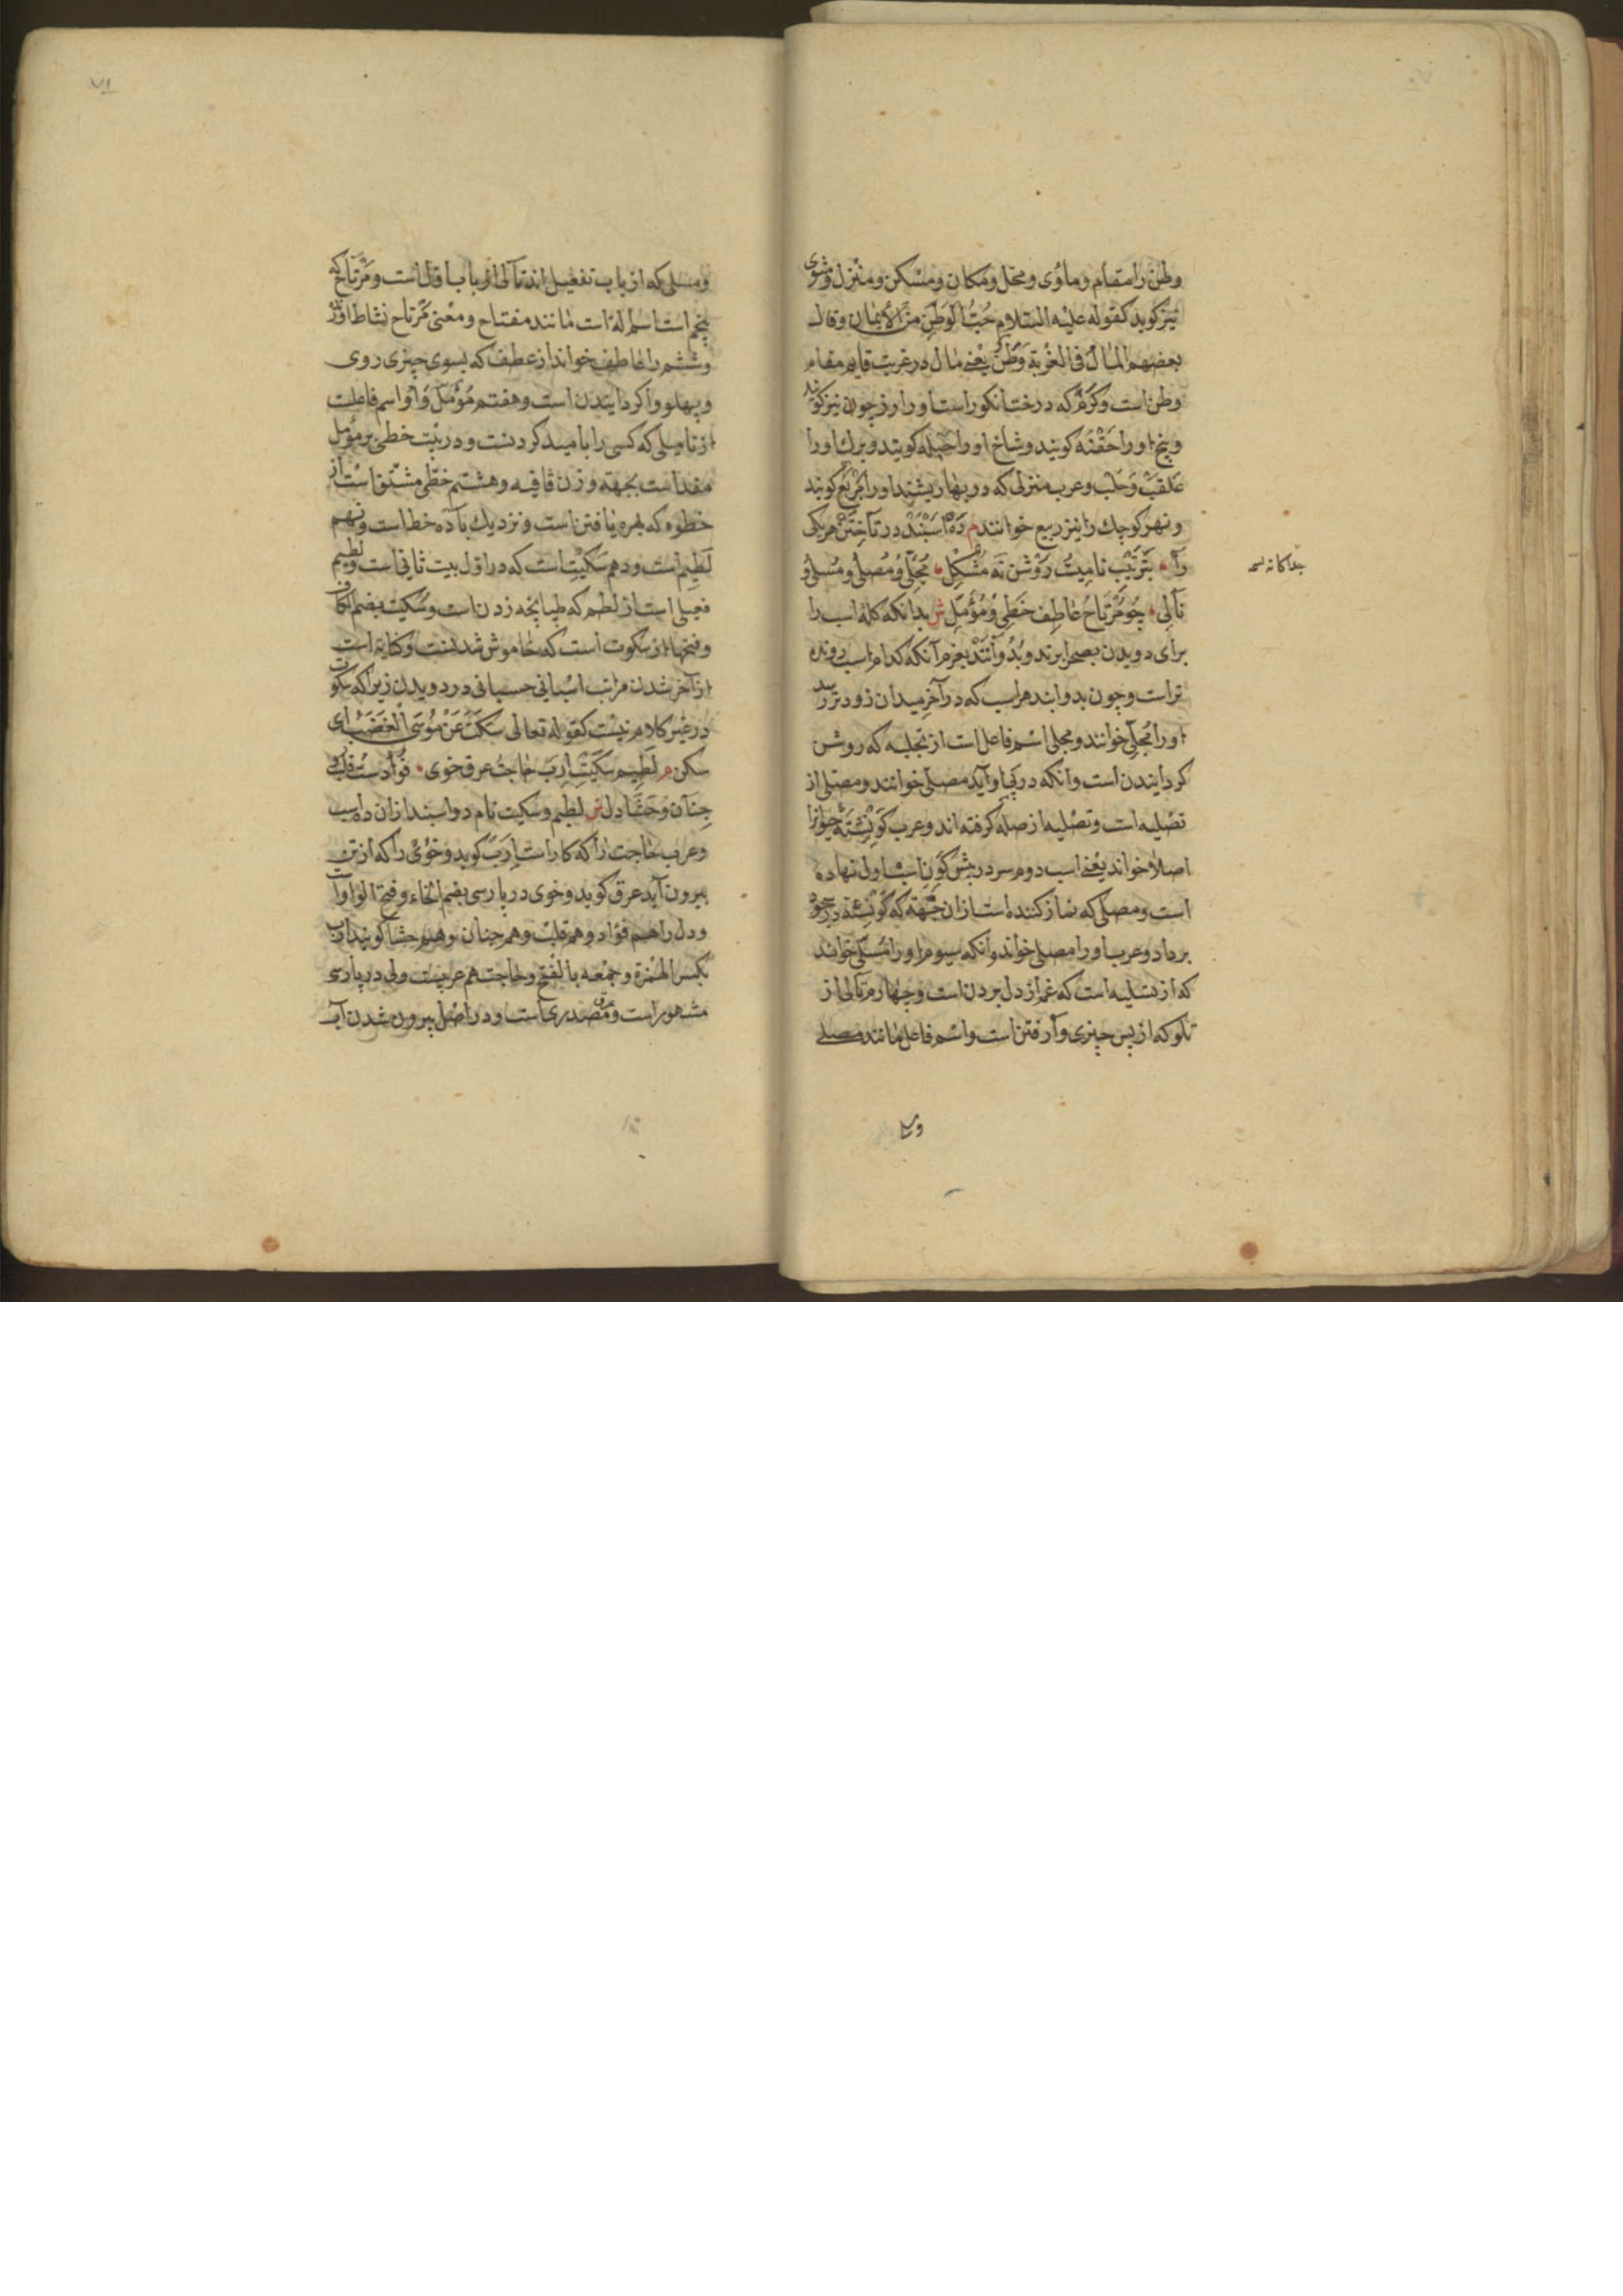 وطن را مقام و ماوی و محل و مکان و مسکن و منزل و مثوی
نیز کوید کقوله علیه السلام حُبُّ الوَطَنِ مِنَ الأیمان وقال
بعضهم المالُ فی الغُربة وَطَنٌ یعنی مال در غربت قایم مقام
وطن است و کَرْم که درخت انکور است او را رز چون نیز کویند
و بیخ او را حَفْنَه کویند و شاخ او را حبله کویند و برك او را
و عرب منزلی که در بهار او را مَرْبَع کویند
و نهر کوچك را نیز ربیع خوانند م دَه اسبند در تاختن هر یکی
را • بترتیب نامیست روشن نه مشکل • مُجَلّی و مُصَلّی و مُسَلّی و
جداکانه
تالی • چو مُرتاح عاطِف حَظی و مُؤمّل ش بدانکه کلهٔ اسب را
برای دویدن بصحرا برند و بدوانند بعزم آنکه کدام اسب دونده
تر است و چون بدوانند هر اسب که در آخر میدان زودتر رسد
او را مُجلّی خوانند و مجلی اسم فاعل است از تجلیه که روشن
کردانیدن است وانکه در پی او آید مصلی خوانند و مصلی از
تصلیه است و تصلیه از صله کرفته اند و عرب
اصلا خواند یعنی اسب دوم سر در پیش اسب اول نهاده
است و مصلی که نماز کننده است ازان جهة که
بردارد و عرب او را مصلی خواند وانکه سیوم او را مُسَلّی خوانند
که از تسلیه است که غم از دل بردن است و چهارم تالی از
تلو که از پس چیزی وا رفتن است و اسم فاعل مانند مصلی
و مسلی که از باب تفعیل اند تالی از باب اول است و مُرتاح که
پنجم است اسم اله است مانند مفتاح و معنی مرتاح نشاط اور
و ششم را عاطف خواند از عطف که بسوی چیزی روی
و پهلو وا کردانیدن است و هفتم مؤمّل و او اسم فاعلست
از تامیل که کسی را بامید کردنست و در بیت حظی بر مؤمل
مقدم است بجهة وزن قافیه و هشتم حظی مشتق است از
حظوه که بهره یافتن است و نزدیك خطاست و نهم
لَطیم است و دهم سُکَیت است که در اول بیت ثانی است و لطیم
فعیل است از لطم که طپانچه زدن است و سکیت بضم الکاف
و فتحها از سکوت است که خاموش شدنست و کنایه است
از آخر شدن مراتب اسبانی در دویدن زیرا که سکوت
در غیر کلام نیست کقوله تعالی سَکَتَ عَنْ مُوسَی الغَضَبُ ای
سکن م لَطیم سُکَیت اِرَب حاجت عرق خوی • فُؤادست قلب و
جَنان و حَشا دل ش لطیم و سکیت نام دو اسبند ازان ده اسب
و عرب حاجت را که کار است اِرَب کوید و خوی را که از تن
بیرون آید عرق کوید و خوی در پارسی بضم الخاء و فتح الواو
و دل را هم فؤاد و هم قلب و هم جنان و هم حشا کویند ارب
بکسر الهمزة و جمعه بالفتح و حاجت هم عربیست ولی در پارسی
مشهور است و عرق مصدری است و در اصل بیرون شدن آب